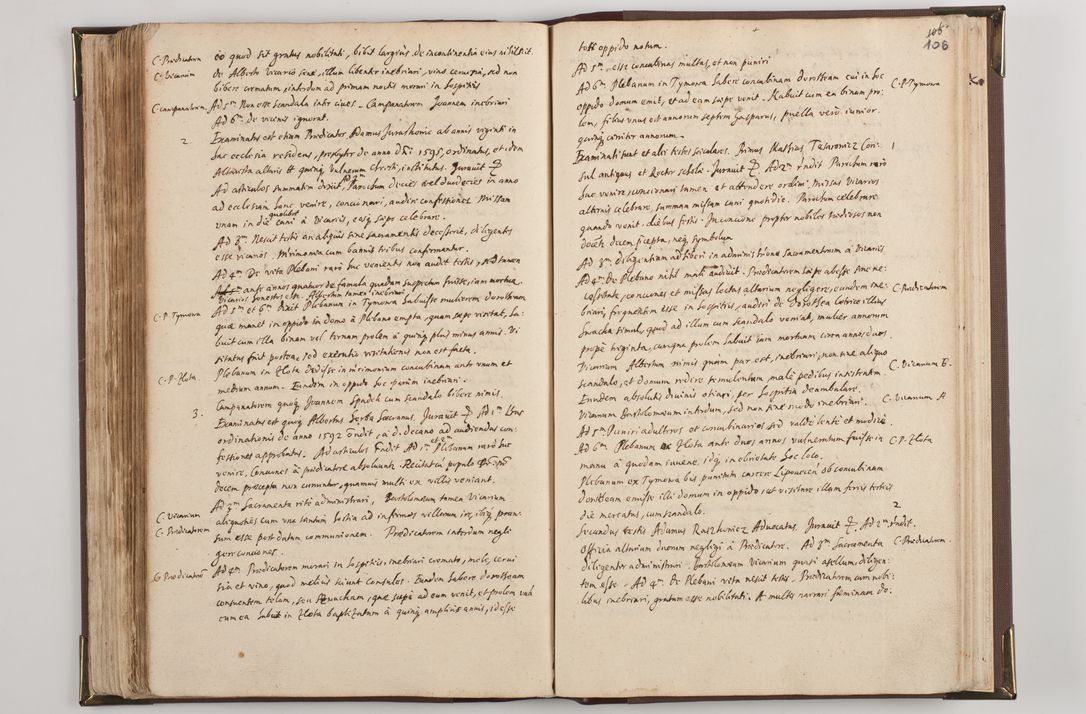 C. Prædicatorem
eo quod sit gratus nobilitati, bibit largius, de incontinentia eius nihil scit.
C. Vicarium
de Alberto Vicario senе, illum libenter inebriari, vino, cerevisia, sed non
bibere crematum, interdum ad primam noctis morari in hospitiis
C. campanatorem.
Ad 5m Non esse scandala inter cives. Campanatorem Joannem inebriari
Ad 6m de vicinis ignorat.
2
Examinatus est etiam Prædicator, Adamus ab annis viginti in
hac ecclesia residens, presbyter de anno Dni 1595, ordinatus, et idem
Altarista altaris quinque vulnerum Christi, institutus. Juravit
Ad articulos summatim dixit, Parochum decies vel duodecies in anno
ad ecclesiam hanc venire, concionari, audire confessiones. Missam
unam in die quolibet cani à Vicariis, eosque sæpe celebrare.
Ad 3m. Nescit testis an aliquis sine sacramentis decesserit, diligentes
esse vicarios. Mrimonia cum bannis tribus confirmantur.
Ad 4m De vita Plebani raro huc venientis non audit testis, sed tamen
ante annos quatuor de famula quadam suspectum fuisse, iam mortua.
Vicarios honestos esse, Albertum tamen inebriari
C. P. Tymowa
Ad 5m et 6m Dixit Plebanum in Tymowa habuisse mulierem Dorotheam
quæ manet in oppido in domo à Plebano empta, quam sæpe visitat, ha-
buit cum illa binam vel ternam prolem à quinque plus minus annis. Vi
sitatus fuit postea, sed executio visitationis non est facta.
C. P. Zlota.
Plebanum in Zlota dedisse in mrimonium concubinam ante unum et
medium annum. Eundem in oppido hoc pariter inebriari.
Campanatorem quoque Joannem Spadek cum scandalo bibere nimis.
3.
Examinatus est quoque Albertus Serba Vicarius. Juravit Ad 1m
ordinationis de anno 1592 ondit, à d. decano ad audiendas con-
fessiones approbatus. Ad articulos rndit Ad 1m et 2m Plebanum raro huc
venire, Conciones à prædicatore absolvuntur. Recitatur populo
decem præcepta non canuntur, quamvis multi ex villis veniant.
C. Vicarium
Ad 3m Sacramenta rite administrari, Bartolomæum tamen Vicarium
aliquoties cum una tantum hostia ad infirmos villarum ire, ibique
C. Prædicatorem
sum esse post datam communionem. Prædicatorem interdum negli
gere conciones.
C. Prædicatorem
Ad 4m Prædicatorem morari in hospitiis, inebriari cremato, melle, cervi
sia et vino, quod melius sciunt Consules. Eundem habere Dorotheam
textricem telarum, seu, quæ sæpe ad eum venit, et prolem unam
cum ea habuit in Zlota baptizatam à quinque amplius annis, id esse
106
106
toti oppido notum.
Ad 5m. esse concubinas multas, et non puniri
C. P. Tymowa
Ad 6m Plebanum in Tymowa habere concubinam Dorotheam cui in hoc
oppido domum emit, et ad eam sæpe venit. Habuit cum ea binam pro
lem, filius unus est annorum septem Gasparus, puella vero iunior
quinque circiter annorum.
1
Examinati sunt et alii testes sæculares. Primus Mathias Con-
sul antiquus et Rector scholæ. Juravit Ad 2m rndit Parochum raro
huc venire, concionari tamen et attendere ordini, missas Vicarios
alternis celebrare, summam missam cani quotidie. Parochum celebrare
quando venit diebus festis. In concione propter nobiles hæreticos non
docet decem præcepta, neque symbolum
Ad 3m diligentiam adhiberi in administratione Sacramentorum à Vicariis
C. Prædicatorem
Ad 4m De Plebano nihil mali audivit. Prædicatorem sæpe abesse sine ne-
cessitate, conciones et missas lectas altarium negligere, eundem ine-
briari, frequentem esse in hospitiis, audiri de Dorothea lotrice illius
simul, quod ad illum cum scandalo veniat, mulier annorum
prope triginta, eamque prolem habuit iam mortuam circa annos duos
C. Vicarium B.
Vicarium Albertum nimis quam par est, inebriari, non sine aliquo
scandalo, et domum redire temulentum, male pedibus insistentem.
Eundem absolutis divinis otiari, per hospitia deambulare.
C. Vicarium A
Vicarium Bartolomæum interdum, sed non sine modo inebriari.
Ad 5m Puniri adulteros et concubinarios, sed valde lente et modice
C. P. Zlota
Ad 6m. Plebanum ex Zlota ante duos annos vulneratum fuisse in
manu à quodam iuvene, idque in ebrietate hoc loco.
Plebanum ex Tymowa bis punitum carcere Lipovecen ob concubinam
Dorotheam emisse illi domum in oppido, et visitare illam feriis tertiis
die mercatus, cum scandalo.
2
Secundus testis Adamus Advocatus, Juravit Ad 2m rndit.
C. Prædicatorem.
Officia altarium duorum negligi à Prædicatore. Ad 3m Sacramenta
diligenter administrari. Bartolomæum Vicarium quasi asellum, diligen-
tem esse. Ad 4m De Plebani vita nescit testis. Prædicatorem cum nobi-
libus inebriari, gratum esse nobilitati. A multis narrari fæminam Do-